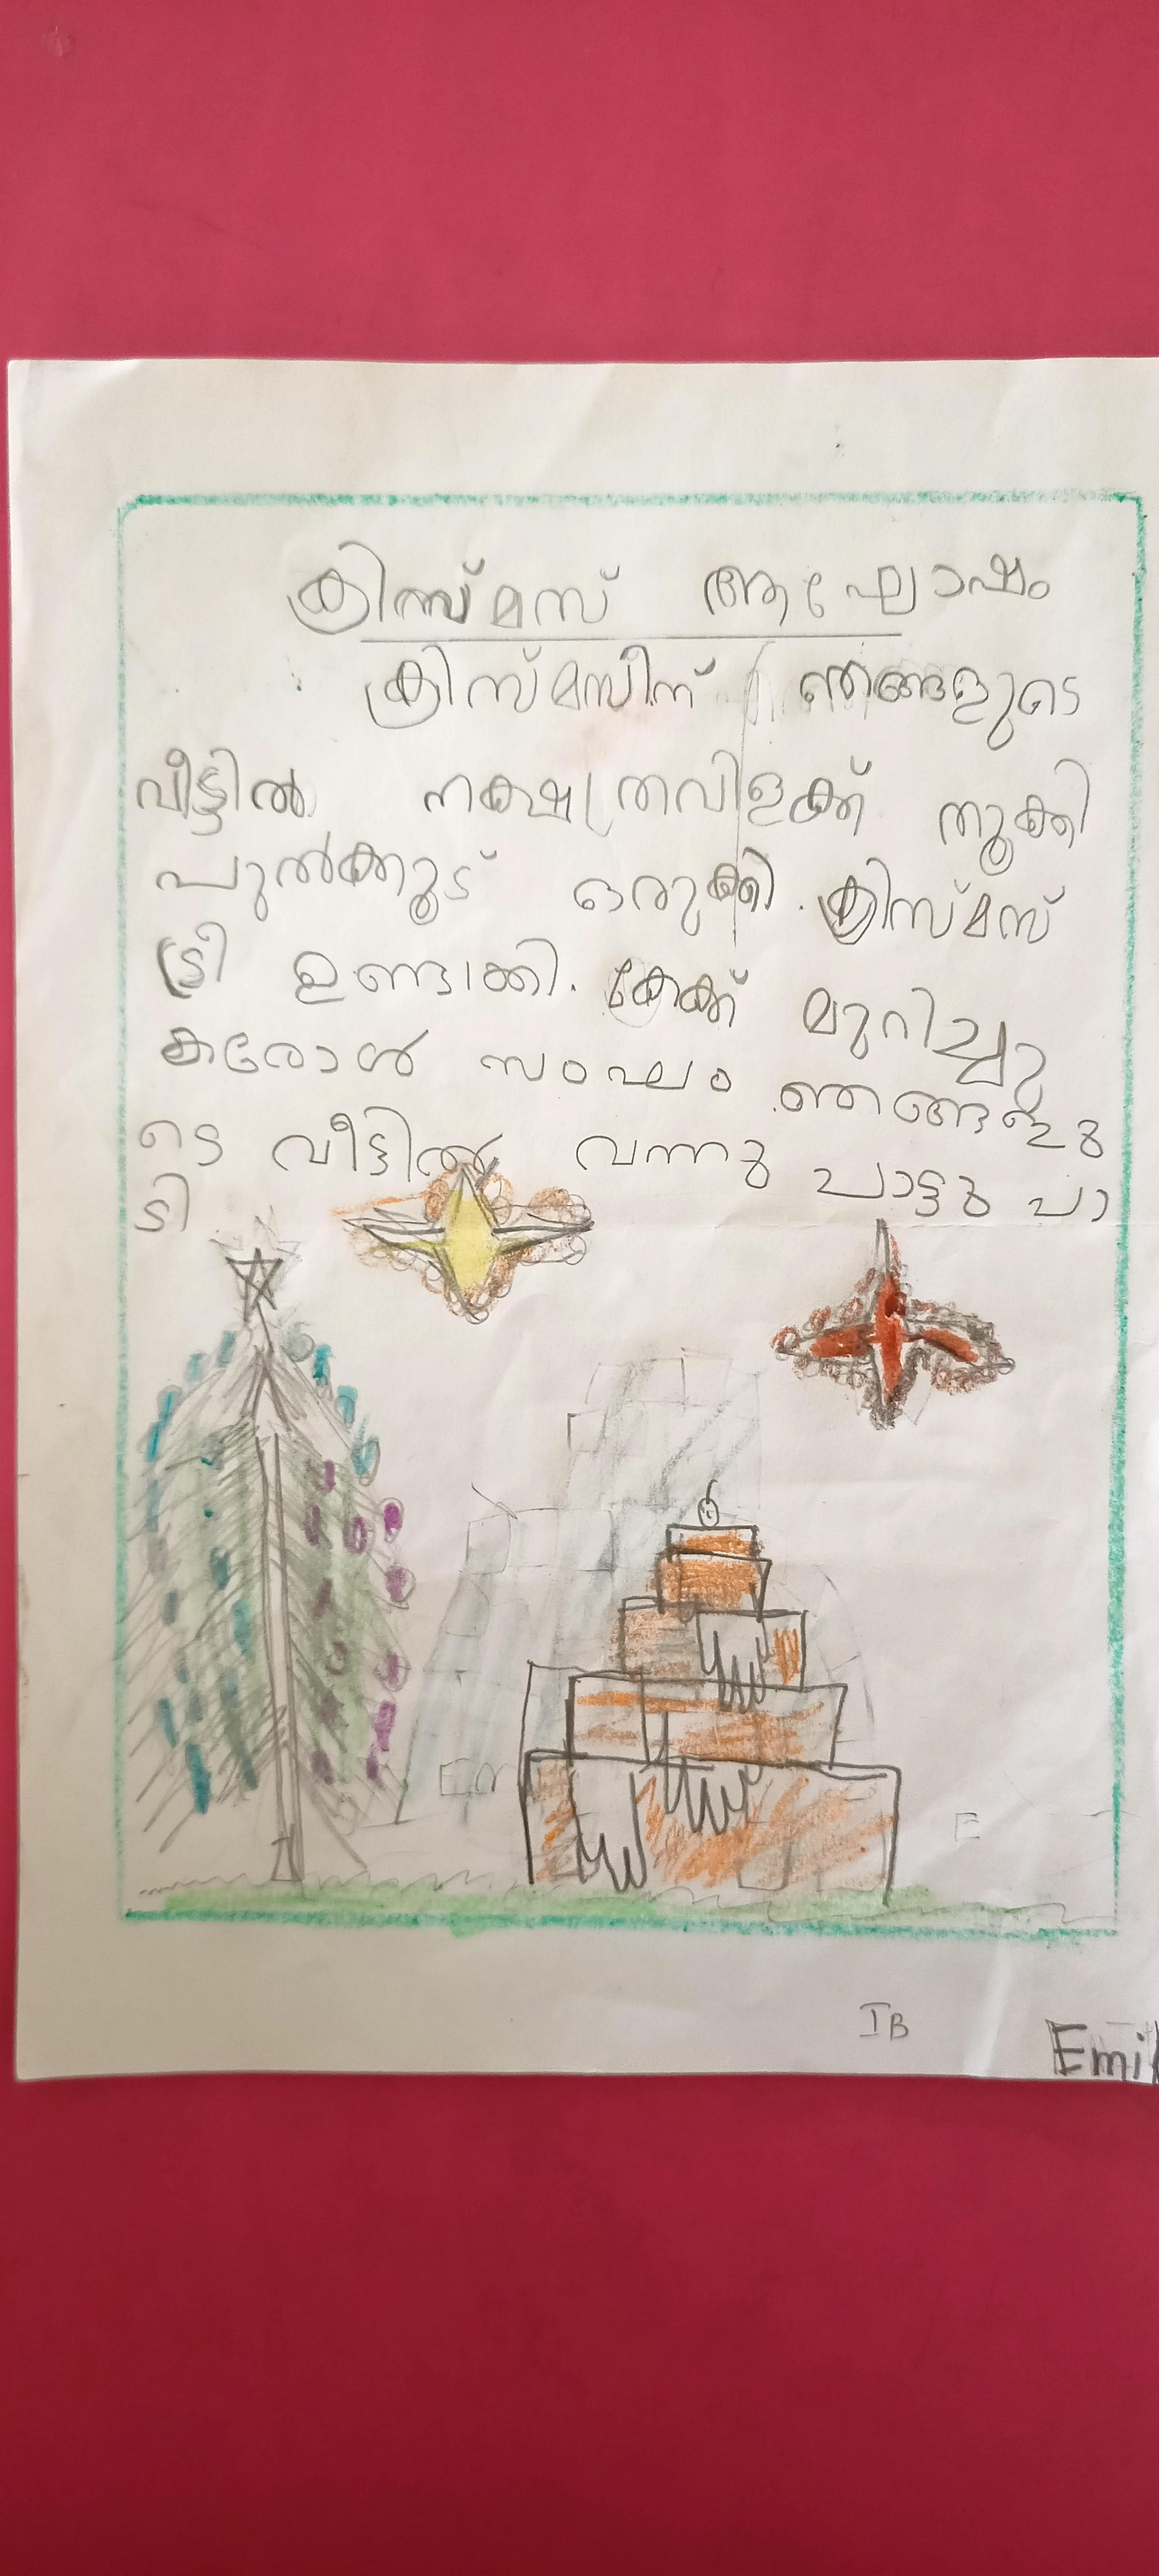 ക്രിസ്മസ് ആഘോഷം
ക്രിസ്മസിന് ഞങ്ങളുടെ
വീട്ടിൽ നക്ഷത്രവിളക്ക് തൂക്കി
പുൽക്കൂട് ഒരുക്കി. ക്രിസ്മസ്
ട്രീ ഉണ്ടാക്കി. കേക്ക് മുറിച്ചു
കരോൾ സംഘം ഞങ്ങളു
ടെ വീട്ടിൽ വന്നു പാട്ടു പാ
ടി
Em
E
IB
Emil